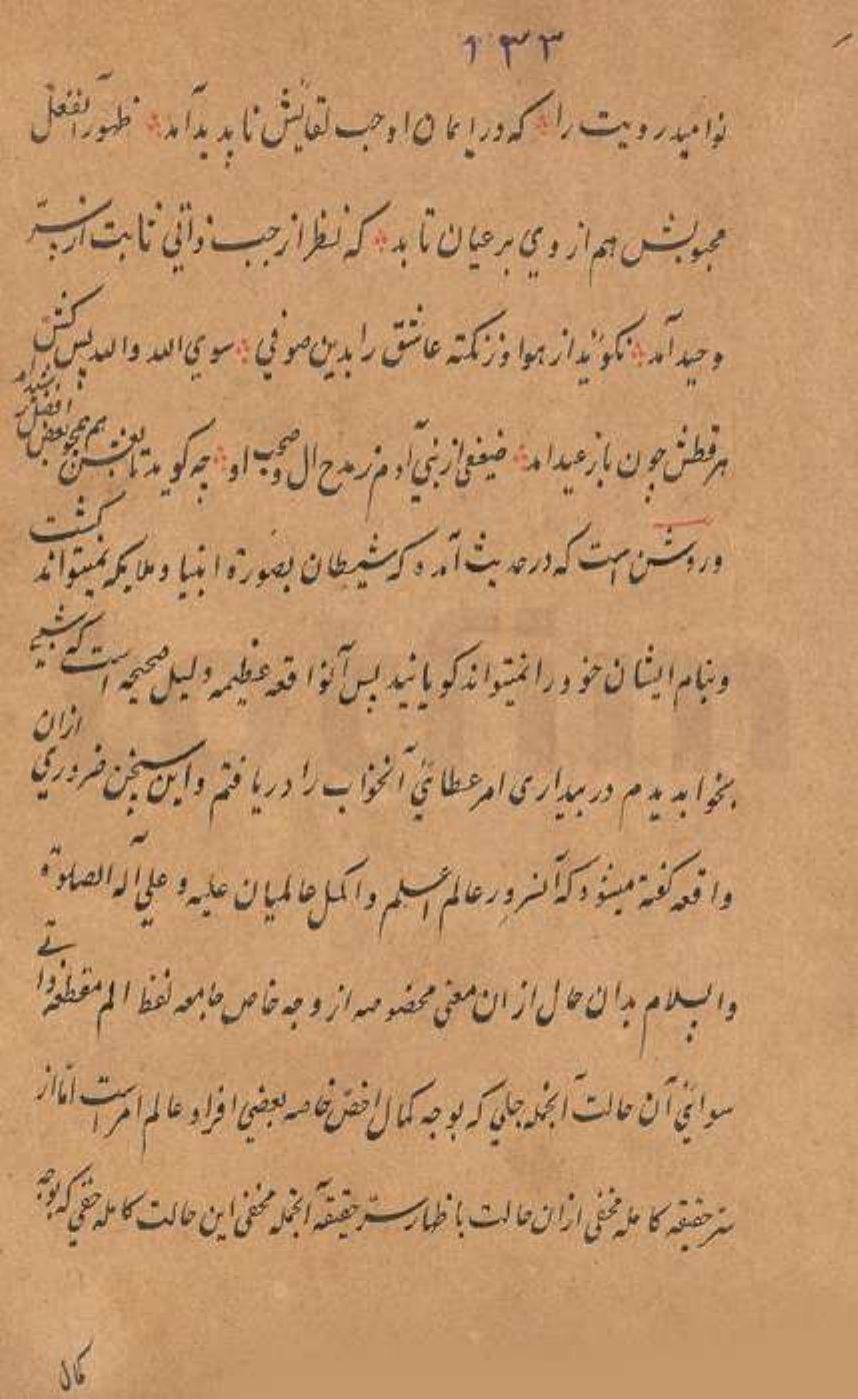 ۱۳۳
نوامید رویت را که در ایمان او حب لقایش ناپدید آمد ظهور
محبوبش هم از وی بر عیان تابد که نظر از حب ذاتی ثابت از سر
وحید آمد نکوئید از هوا عاشق را بدین صوفی سوی الله والله پس کنش
هر چون باز عید آمد ضیغفی از بنی آدم ز مدح ال و صحب او چه کوید تا
همچو بعض
و روشن است که در حدیث آمده که شیطان بصورة انبیا و ملایکه نمیتواند کشت
و بنام ایشان خود را نمیتواند کویانید پس آنواقعه عظیمه دلیل صحیحه است که شبی
بخواب دیدم در بیداری امر عطائی آنخواب را دریافتم و این سخن ضروری ازان
واقعه کفته میشود که آنسرور عالم اعلم و اکمل عالمیان علیه و علی آله الصلوة
والسلام بدان حال از ان معنی مخصوصه از وجه خاص جامعه لفظ الم مقطعه
سوائی آن حالت آنجمله جلی که بوجه کمال اخص خاصه بعضی افراد عالم امر است اما از
سر حقیقه کامله مخفی ازان حالت باظهار سر حقیقه آنجمله مخفی این حالت کامله خفی که بوجه
کمال